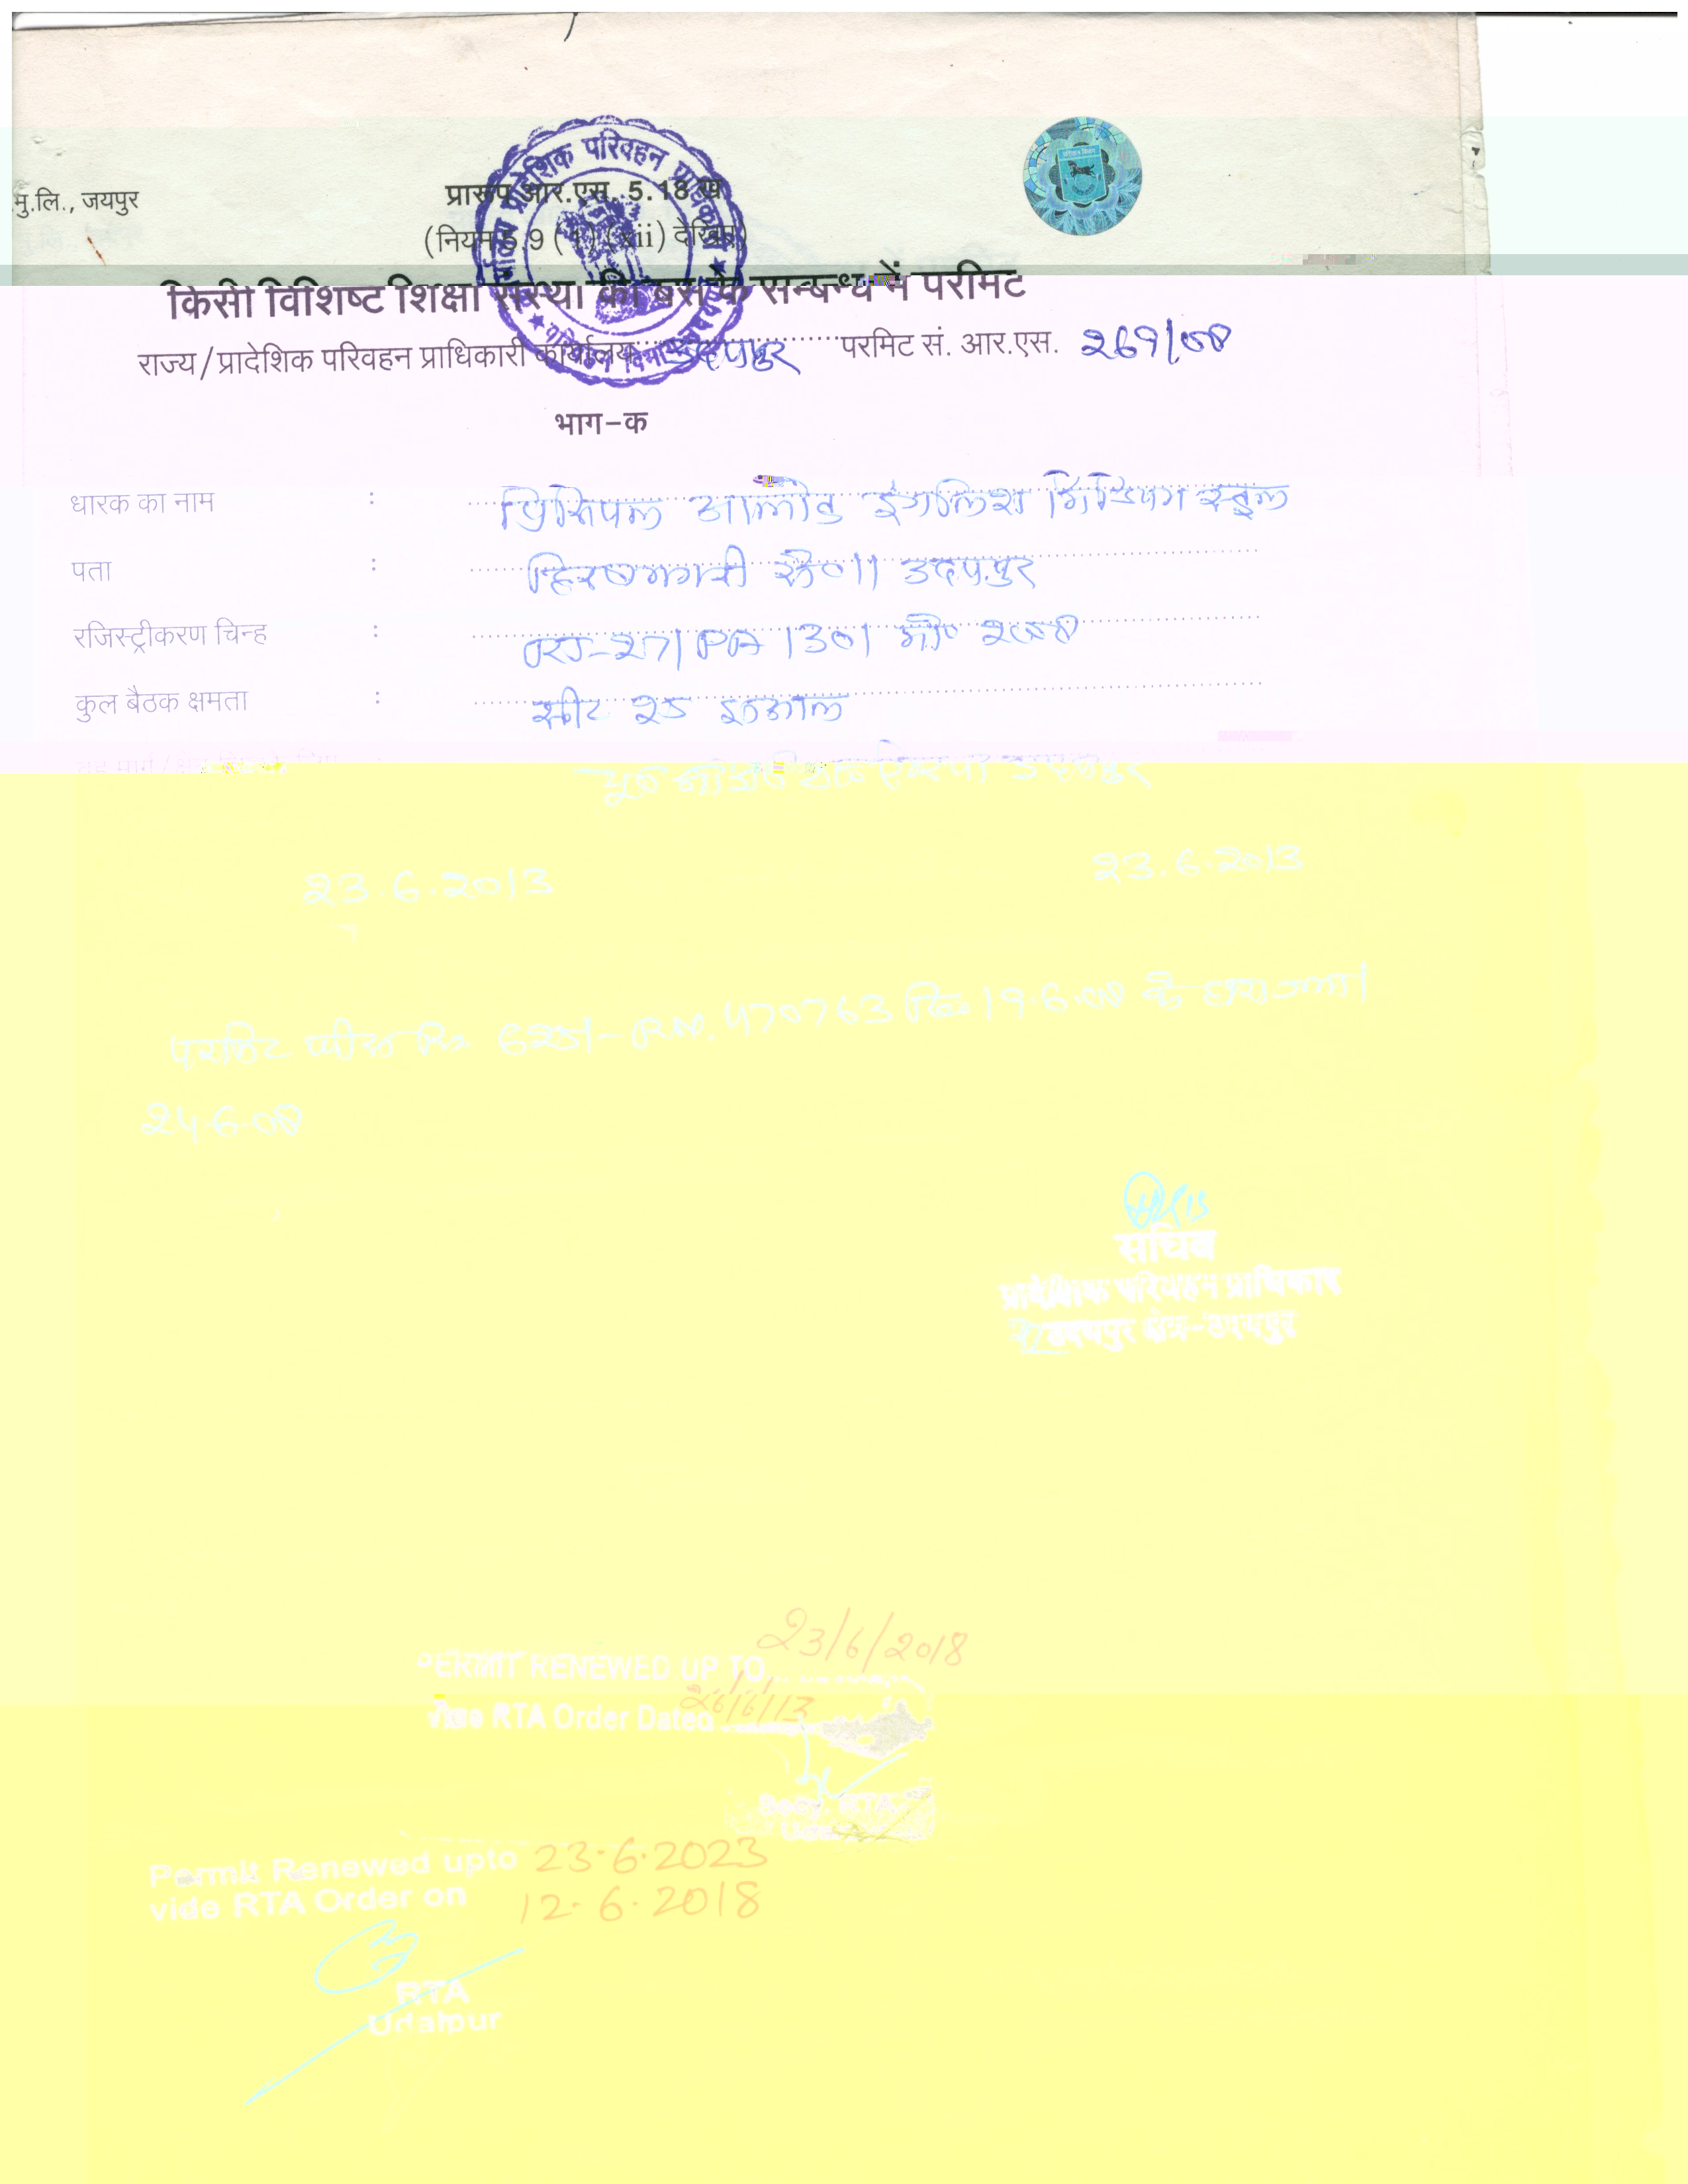 मु.लि., जयपुर
प्रारूप आर.एस. 5.18 ख
(नियम 5.9 (1) (xii) देखिए)
किसी विशिष्ट शिक्षा संस्था की बस के सम्बन्ध में परमिट
राज्य/प्रादेशिक परिवहन प्राधिकारी कार्यालय उदयपुर परमिट सं. आर.एस. 269/08
भाग-क
धारक का नाम : प्रिंसिपल आलोक इंगलिश मिडियम स्कूल
पता : हिरणमगरी से० 11 उदयपुर
रजिस्ट्रीकरण चिन्ह : RJ-27/PA 1301 मॉ० 2008
कुल बैठक क्षमता : सीट 25
उदयपुर
23.6.2013 23.6.2013
परमिट फीस 625/- RN. 470763 दि० 19.6.08 के द्वारा जमा।
24.6.08
सचिव
प्रादेशिक परिवहन प्राधिकार
उदयपुर क्षेत्र-उदयपुर
PERMIT RENEWED UP TO 23/6/2018
vide RTA Order Dated 26/6/13
Secy. RTA
Permit Renewed upto 23.6.2023
vide RTA Order on 12.6.2018
RTA
Udaipur